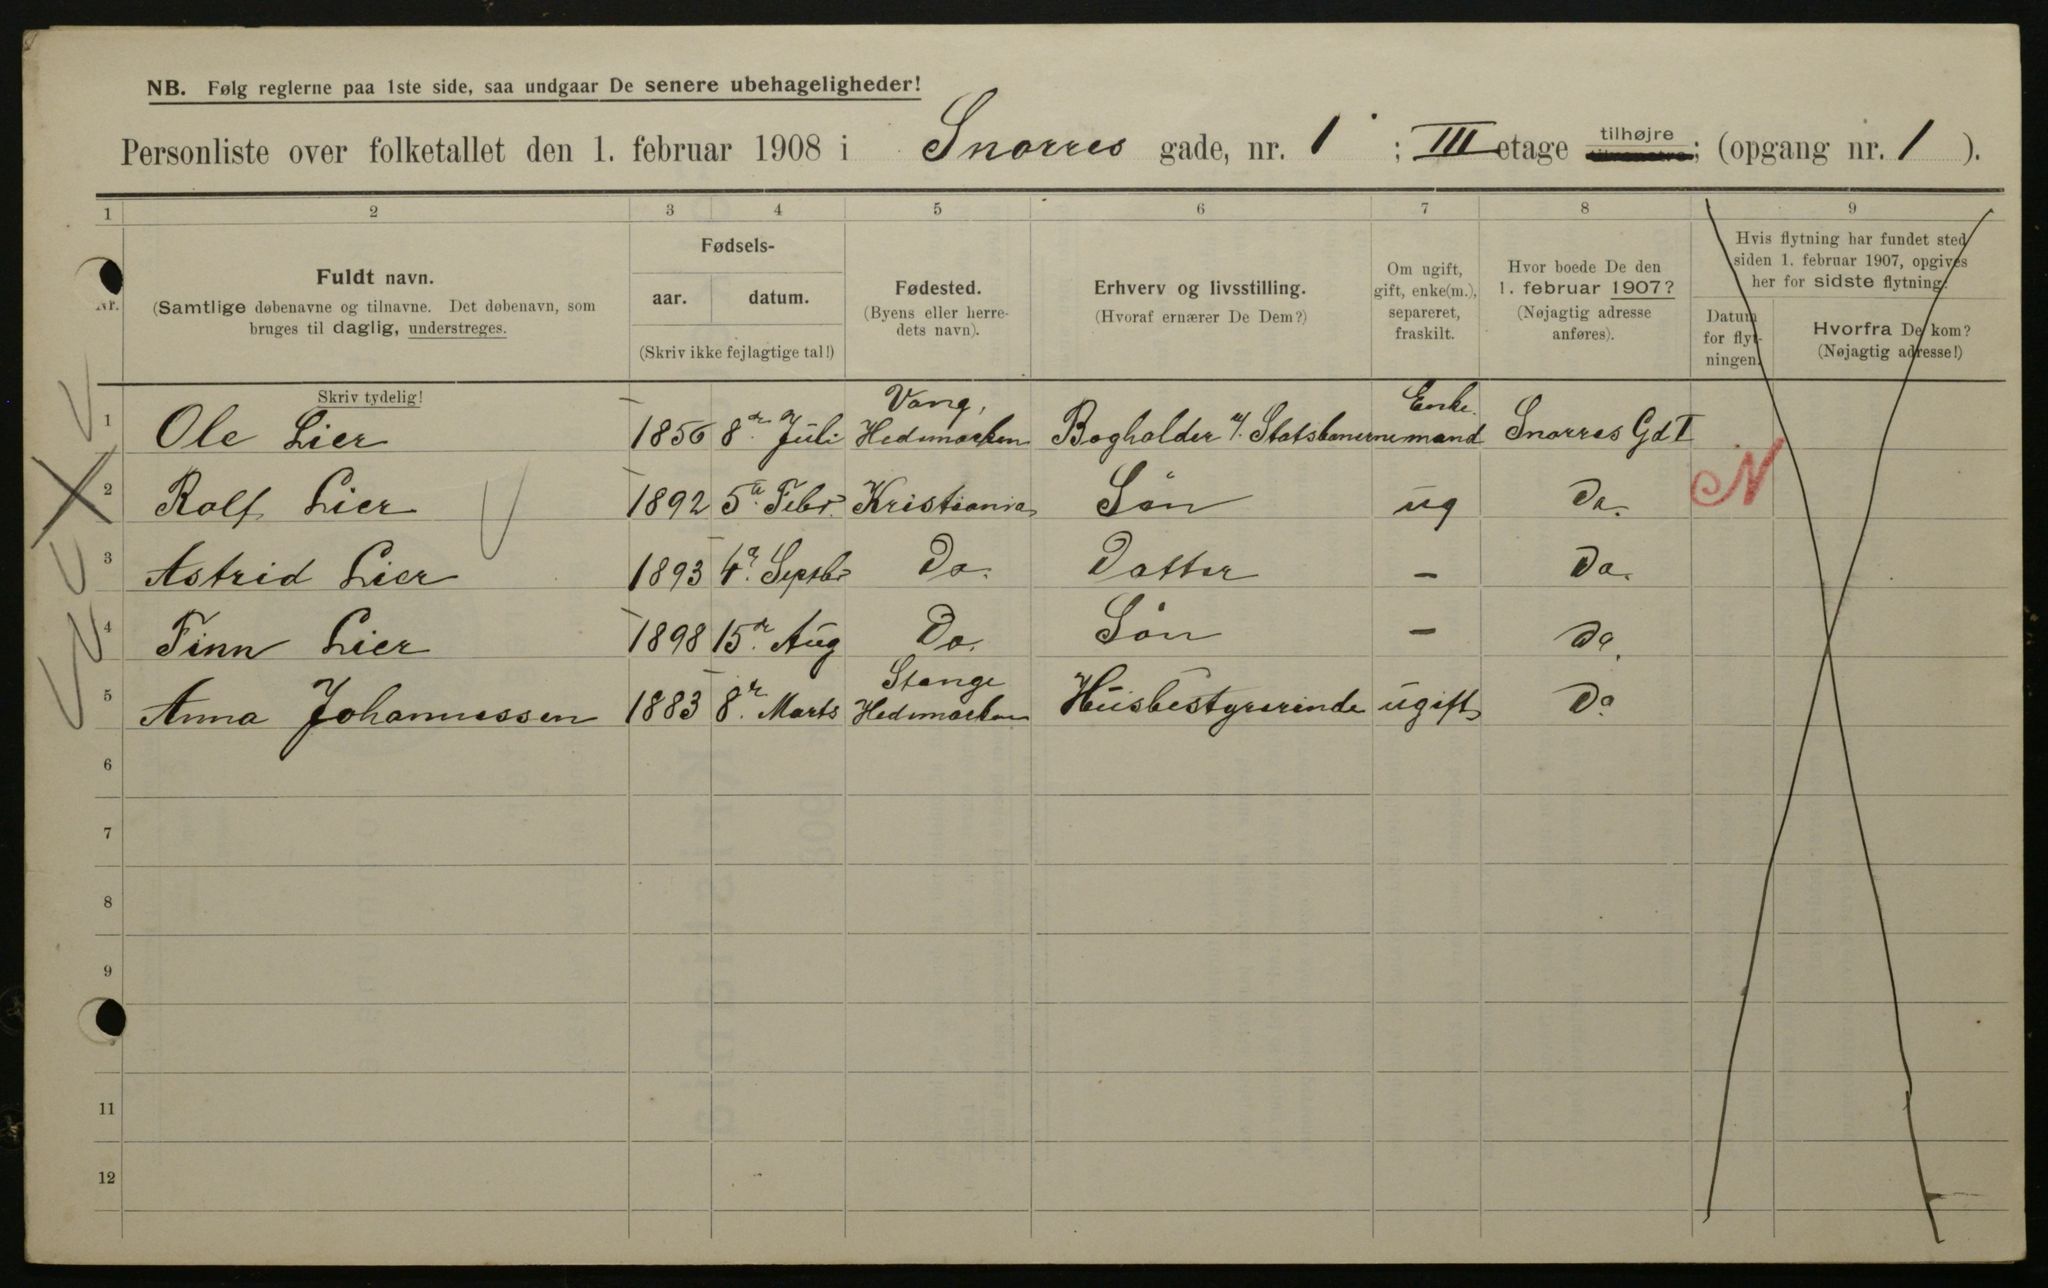 NB. Følg reglerne paa 1ste side, saa undgaar De senere ubehageligheder!
Personliste over folketallet den 1. februar 1908 i Snorres gade, nr. 1 ; III etage tilhøjre tilvenstre; (opgang nr. 1 ).
1 2 3 4 5 6 7 8 9
Nr.
Fuldt navn.
(Samtlige døbenavne og tilnavne. Det døbenavn, som
bruges til daglig, understreges.
Skriv tydelig!
Fødsels-
aar. datum.
(Skriv ikke fejlagtige tal!)
Fødested.
(Byens eller herre-
dets navn).
Erhverv og livsstilling.
(Hvoraf ernærer De Dem?)
Om ugift,
gift, enke(m.),
separeret,
fraskilt.
Hvor boede De den
1. februar 1907?
(Nøjagtig adresse
anføres).
Hvis flytning har fundet sted
siden 1. februar 1907, opgives
her for sidste flytning:
Datum
for flyt-
ningen.
Hvorfra De kom?
(Nøjagtig adresse!)
1 Ole Lier 1856 8de Juli Vang, Hedemarken Bogholder v/. Statsbanerne Enkemand Snorres Gd I
2 Rolf Lier 1892 5te Febr. Kristiania Søn ug Do. N
3 Astrid Lier 1893 4de Septbr Do. Datter - Do.
4 Finn Lier 1898 15de Aug Do. Søn - Do.
5 Anna Johannessen 1883 8de Marts Stange Hedemarken Husbestyrerinde ugift Do
6
7
8
9
11
12